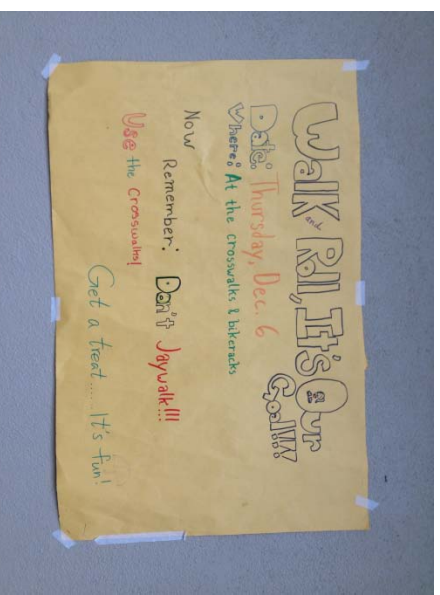 Walk and Roll, It's Our
Goal!!!
Date: Thursday, Dec. 6
Where: At the crosswalks & bikeracks
Now Remember: Don't Jaywalk!!!
Use the crosswalks!
Get a treat..... It's fun!